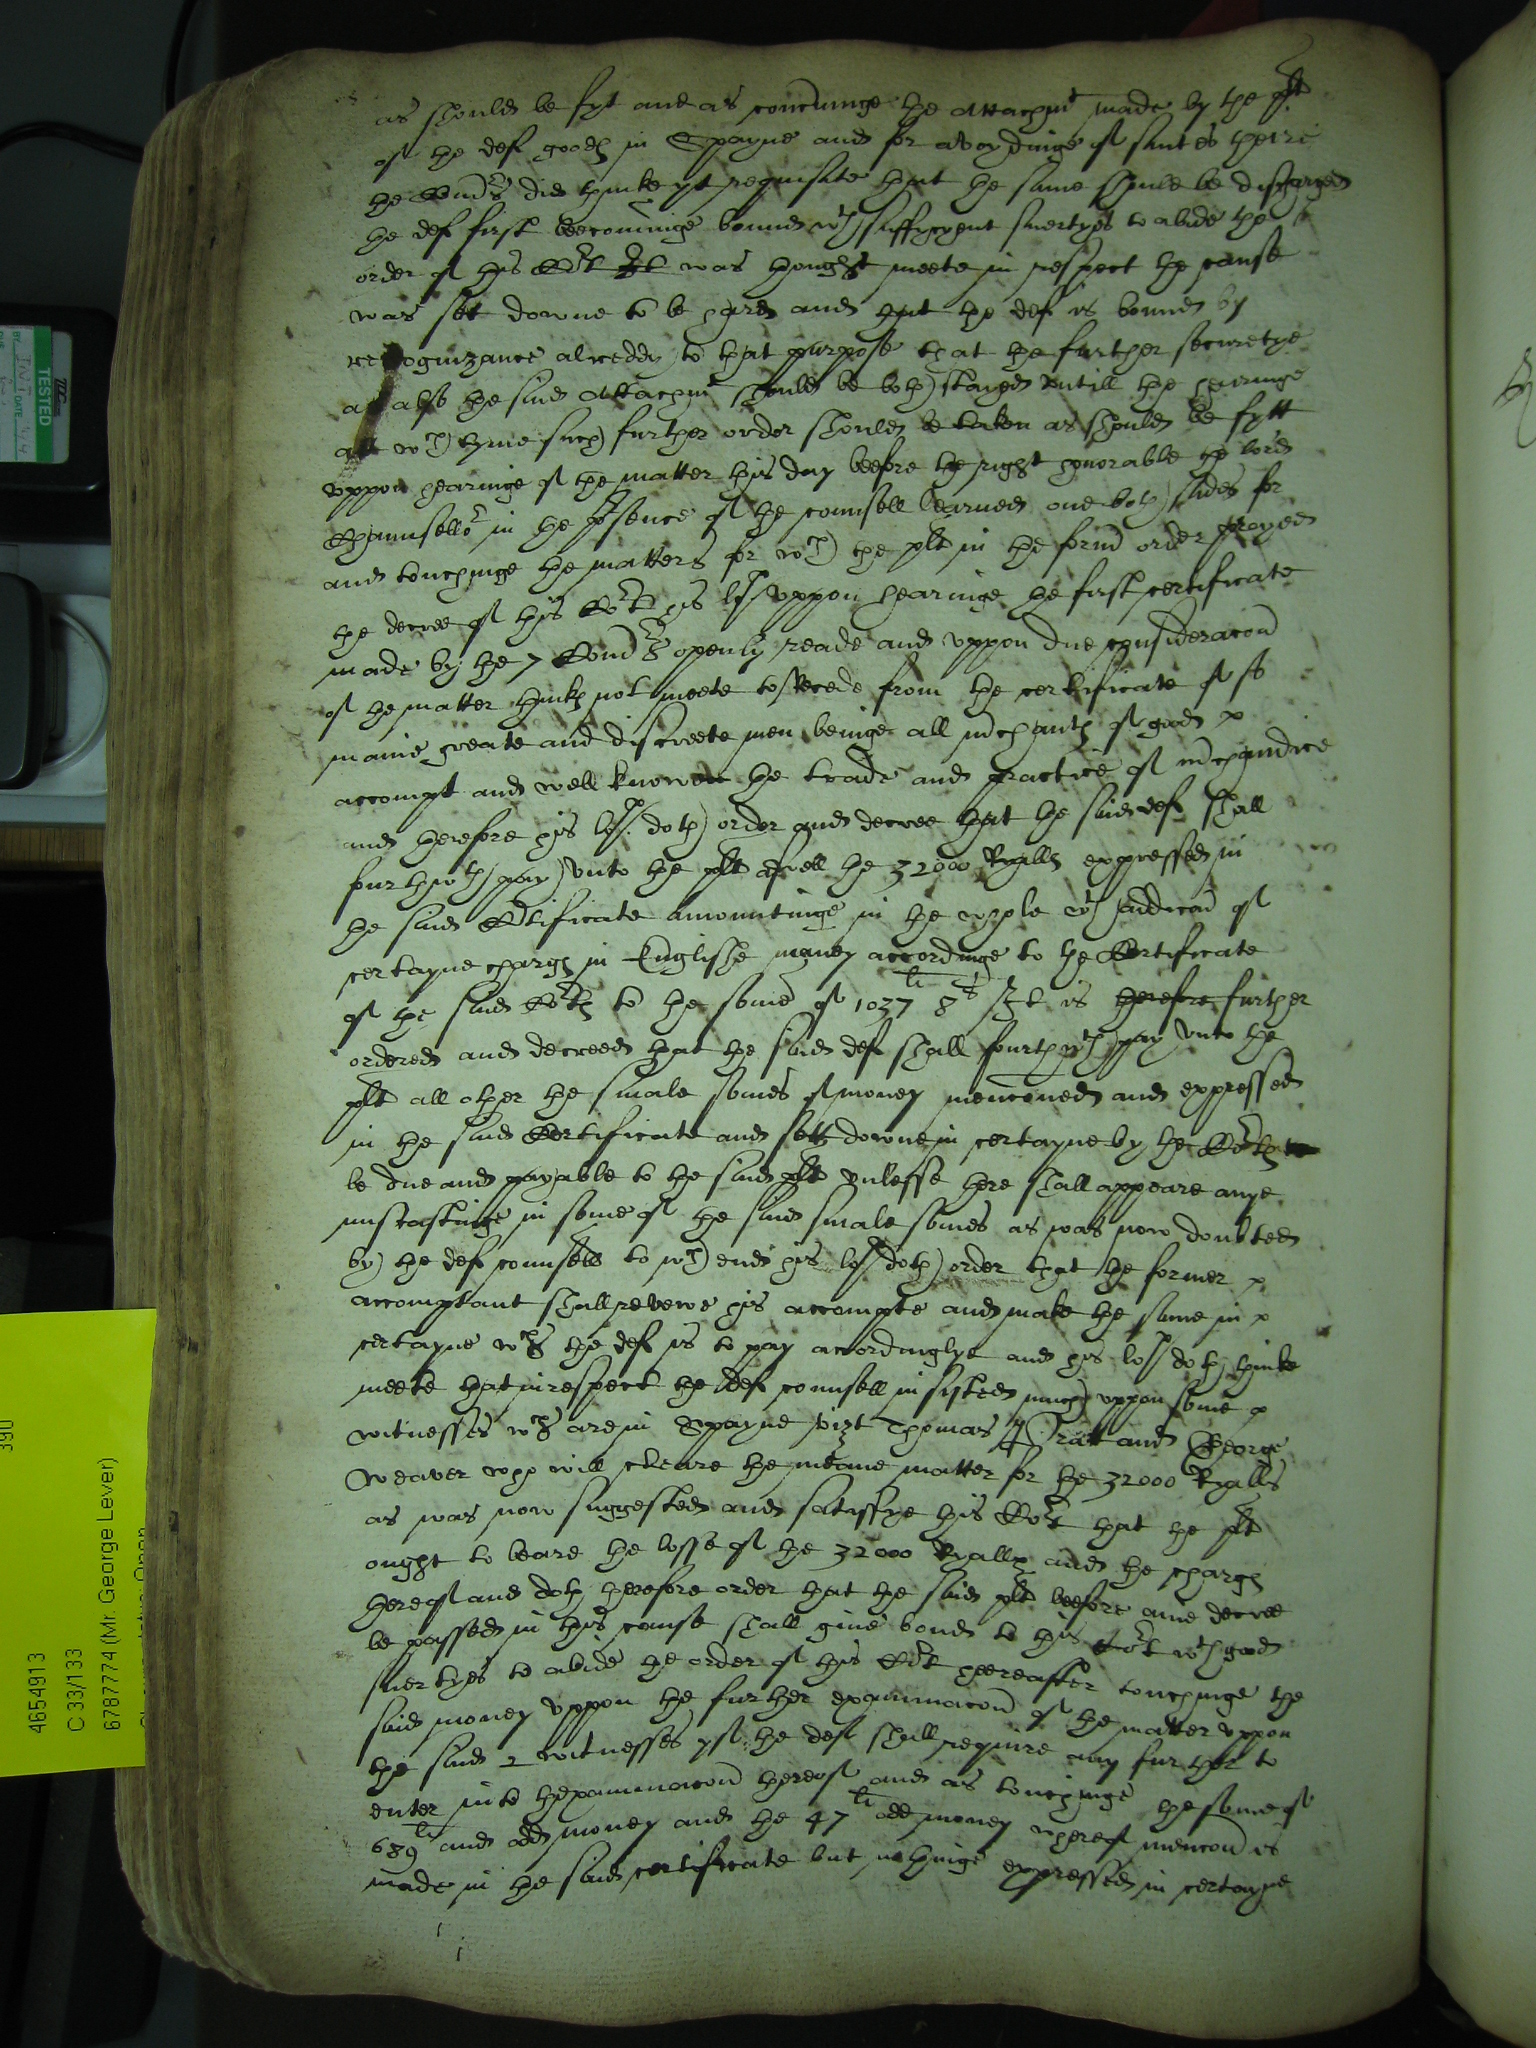 as should be fyt and as concⁱnge the attachmt made by the plt
of the def goodℯ in Spayne and for avoydinge of suites there
the Comrs did thinke yt requisite that the same should be discharged
the def first becominge bound wth suffycyent suertyes to abide the
order of this Cort It was thought meete in respect the cause
was set downe to be hard and that the def is bound by
recognizance alreddy to that purpose that the further securetye
as also the said attachmt should be both stayed untill the hearinge
att wch tyme such further order should be taken as should be fytt
uppon hearinge of the matter this day beefore the right honorable the lord
Chauncellor in the psence of the councell learned one both sides for
and touchinge the matters for wch the plt in the form order prayed
the decree of this Cort his lp uppon hearinge the first certificate
made by the 7 Comrs openly reade and uppon due consideracon
of the matter thinkℯ not meete to recede from the certificate of so
manie greate and discreete men beinge all mchantℯ of good
accompt and well knowen the trade and practice of mchandice
and therefore his lp. doth order and decree that the said def shall
fourthwth pay unto the plt aswell the 32000 Ryallℯ expressed in
the said Certificate amountinge in the whole wth addicon of
certayne chargℯ in Englishe money accordinge to the Certificate
of the said Comrs to the some of 1037li 8s It is therefore further
ordered and decreed that the said def shall fourthwth pay unto the
plt all other the smale somes of money menconed and expressed
in the said Certificate and sett downe in certayne by the Comrs to
be due and payable to the said plt unlesse there shall appeare anye
miscastinge in some of the said smale somes as was now doubted
by the def counsell to wch end his lp doth order that the former
accomptant shall revewe his accompte and make the same in
certayne wch the def is to pay accordinglye and his lp doth thinke
meete that in respect the def counsell insisted much uppon some
witnesses wch are in Spayne vizt Thomas Pratt and George
Weaver who will cleare the meane matter for the 32000 Ryalls
as was now suggested and satisfye this Cort that the plt
ought to beare the losse of the 32000 Ryallℯ and the chargℯ
thereof and doth therefore order that the said plt beefore anie decree
be passed in this cause shall give bond to this Cort wth good
suertyes to abide the order of this Cort hereafter touchinge the
said money uppon the further examinacon of the matter uppon
the said 2 witnesses yf the def shall require any further to
enter into thexaminacon thereof and as touchinge the some of
689li and odd money and the 47li odd money whereof mencon is
made in the said certificate but nothinge expressed in certayne
TESTED
DATE
390
4654913
C 33/133
6787774 (Mr. George Lever)